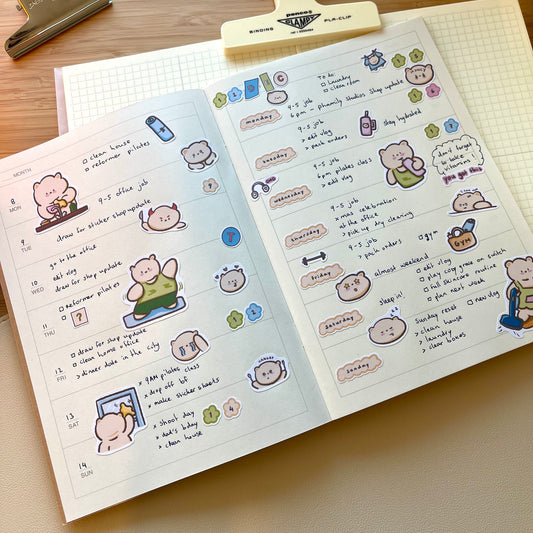 panco®
BINDING
CLAMPY
PLA-CLIP
MONTH
□ clean house
□ reformer pilates
8
MON
9-5 office job
draw for sticker shop update
9
TUE
go to the office
10
WED
edit vlog
draw for shop update
11
THU
□ reformer pilates
□
?
□ draw for shop update
□ clean home office
> dinner date in the city
12
FRI
x 9AM pilates class
x drop off bf
x make sticker sheets
13
SAT
x shoot day
x dad's bday
x clean house
1
4
14
SUN
To do:
□ laundry
□ clean room
monday
9-5 job
6 pm - phamily studios shop update
tuesday
9-5 job
> edit vlog
> pack orders
stay hydrated
wednesday
9-5 job
6pm pilates class
> edit vlog
don't forget
to take
vitamins!
you got this
thursday
9-5 job
x mas celebration
at the office
> pick up dry cleaning
friday
9-5 job
> pack orders
□ gym
GYM
almost weekend
saturday
sleep in!
□ edit vlog
□ play cozy grove on twitch
□ full skincare routine
□ plan next week
sunday
Sunday reset
> clean house
> laundry
> clear boxes
□ new vlog